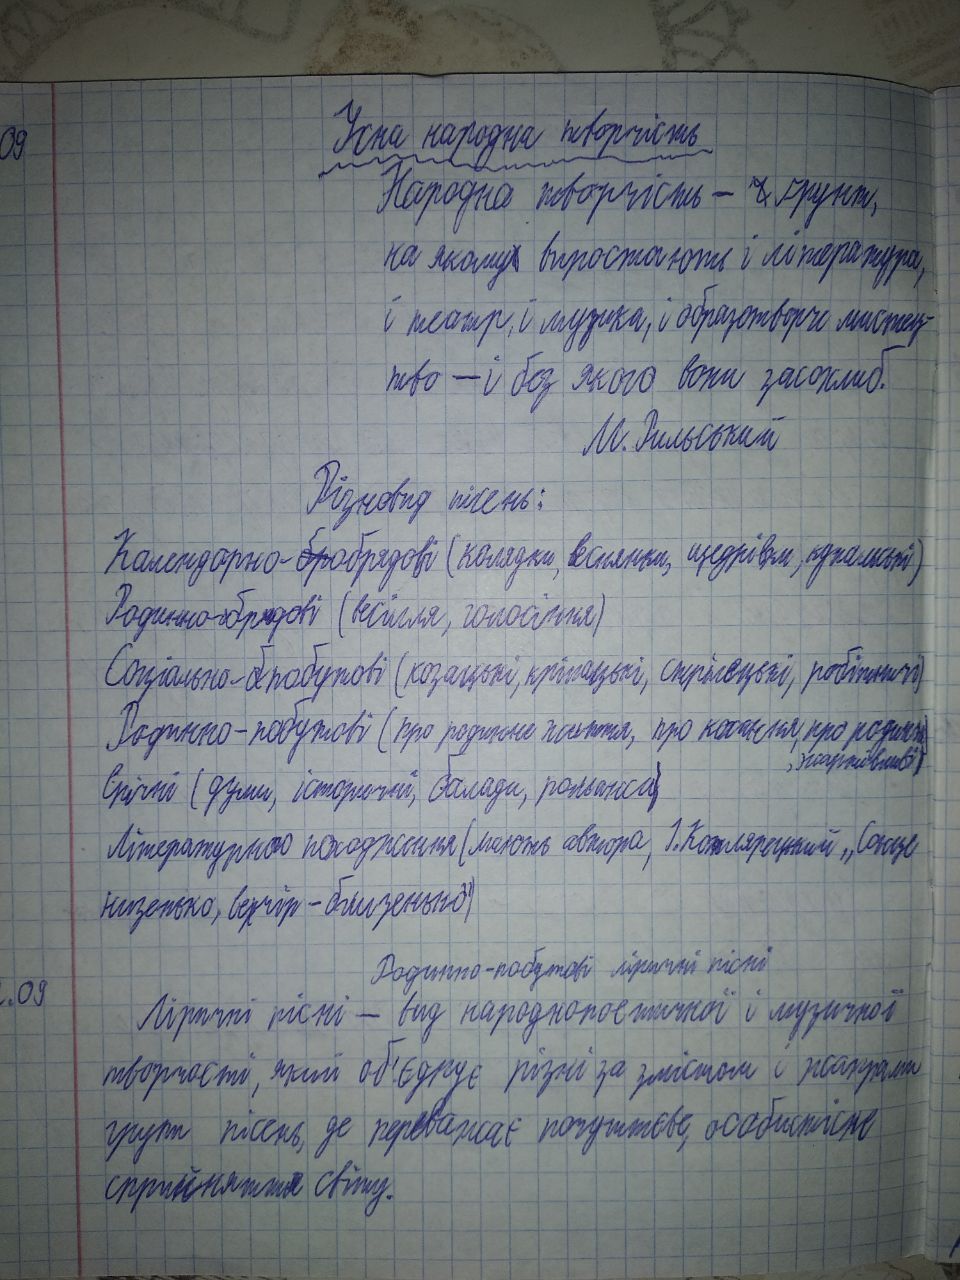 09
Усна народна творчість
Народна творчість – ґрунт,
на якому виростають і література,
і театр, і музика, і образотворче мистец-
тво – і без якого вони засохли б.
М. Рильський
Різновид пісень:
Календарно-обрядові (колядки, веснянки, щедрівки, купальські)
Родинно-обрядові (весілля, голосіння)
Соціально-побутові (козацькі, кріпацькі, стрілецькі, робітничі)
Родинно-побутові (про родинне життя, про кохання, про родинні
, жартівливі)
Епічні (думи, історичні, балади, романси)
Літературного походження (мають автора, І. Котляревський „Сонце
низенько, вечір – близенько")
Родинно-побутові ліричні пісні
.09
Ліричні пісні – вид народнопоетичної і музичної
творчості, який об'єднує різні за змістом і жанрами
групи пісень, де переважає почуттєве, особистісне
сприйняття світу.